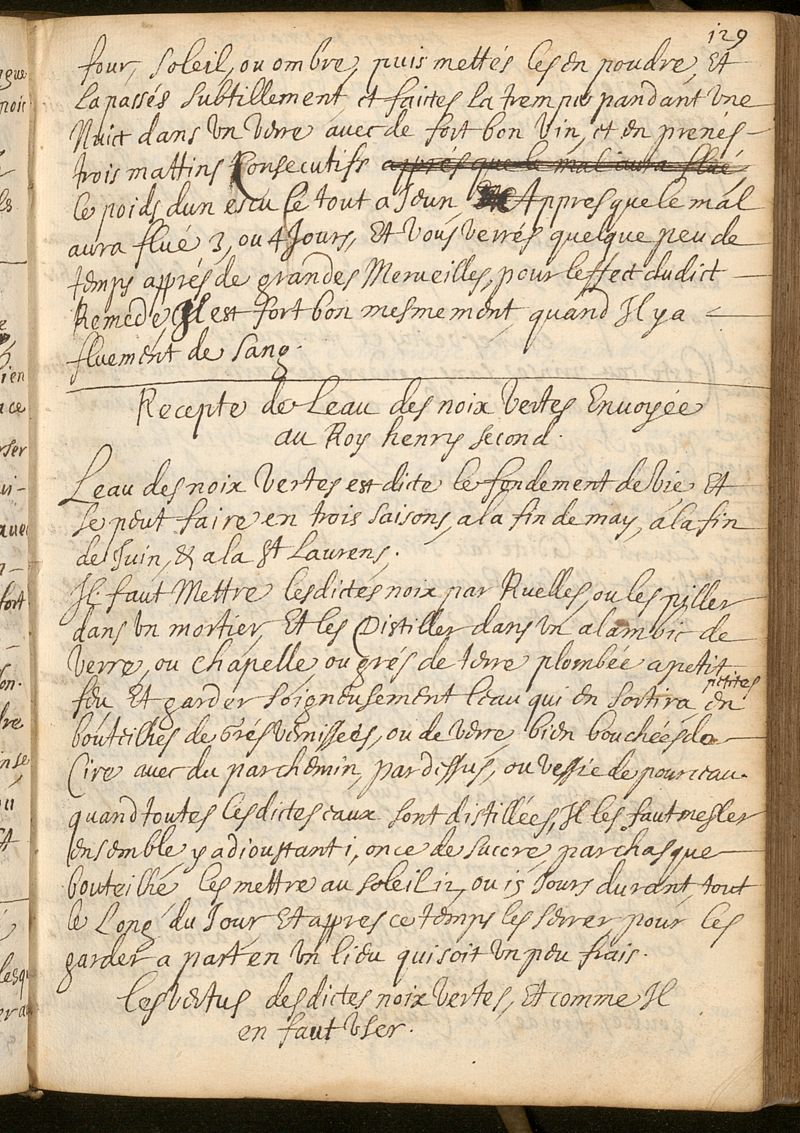 129
four, soleil, ou ombre, puis mettés les en poudre, Et
la passés subtillement, et faictes la tremper pandant Une
Nuict dans Un Verre avec de fort bon Vin, et en prenés
trois mattins Consecutifs apprés que le mal aura flué,
le poids dun escu le tout a Jeun Appres que le mal
aura flué 3, ou 4 Jours, Et Vous Verrés quelque peu de
temps apprés de grandes Merveilles, pour leffect dudict
Remede, Il est fort bon mesmement quand Il y a
fluement de sang.
Recepte de Leau des noix Vertes Envoyée
au Roy henry second.
Leau des noix Vertes est dicte le fondement de Vie Et
se peut faire en trois saisons, a la fin de may, a la fin
de Juin, & a la St Laurens.
Il faut Mettre lesdictes noix par Ruelles, ou les piller
dans Un mortier, Et les Distiller dans Un alambic de
Verre, ou Chapelle, ou grés de terre plombée a petit
feu Et garder soigneusement leau qui en sortira, en petites
bouteilhes de Grés Vernissées, ou de Verre bien bouchées de
Cire avec du parchemin, par dessus, ou Vessie de pourceau.
quand toutes lesdictes eaux sont distillées, Il les faut mesler
ensemble y adioustant 1, once de succre, par chasque
bouteilhe les mettre au soleil 12, ou 15 Jours durant, tout
le Long du Jour, Et appres ce temps les serrer pour les
garder a part en Un lieu qui soit Un peu frais.
les Vertus desdictes noix Vertes, Et comme Il
en faut User.